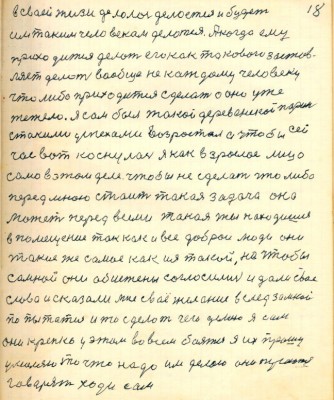 18
в своей жизни делолос делостся и будет
им таким человекам делотся. А когда ему
приходится делот его как токового застов-
ляет делот вообще не каждому человеку
что либо приходится сделат а оно уже
тежело. Я сам был такой деревенской парин
стакими успехами возростал а чтобы сей
час вот коснулся я как взрослое лицо
само в этом деле чтобы не сделат что либо
передомною стоит такая задача она
может перед всеми такая же находится
в помещение так как и все доброи люди они
такие же самое как и я такой, но чтобы
самной они общетены согласиму и дали свое
слова и сказали мне сваё желание вслед замной
попытатся и то сделот чего делаю я сам
они крепко у этом во всем боятся я их прошу
умиляю то что надо им делою они
гаварят ходи сам